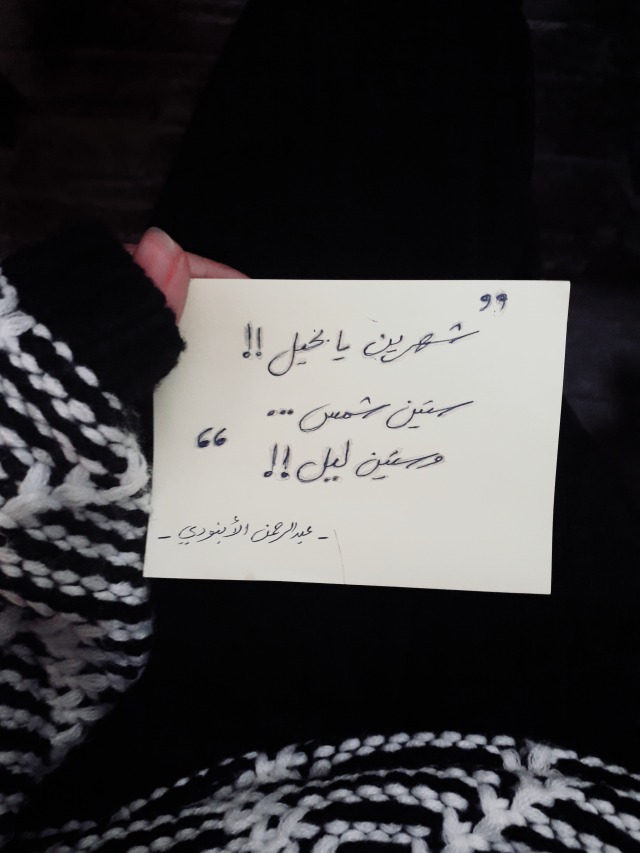 "شهرين يا بخيل!!
ستين شمس...
وستين ليل!!"
- عبدالرحمن الأبنودي -